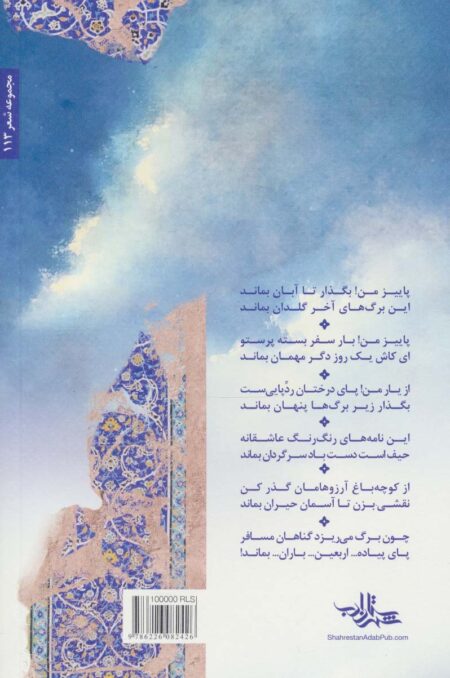 مجموعه شعر ۱۱۳
پاییز من! بگذار تا آبان بماند
این برگ‌های آخر گلدان بماند
پاییز من! بار سفر بسته پرستو
ای کاش یک روز دگر مهمان بماند
از یار من! پای درختان ردّپایی‌ست
بگذار زیر برگ‌ها پنهان بماند
این نامه‌های رنگ‌رنگ عاشقانه
حیف است دست باد سرگردان بماند
از کوچه‌باغ آرزوهامان گذر کن
نقشی بزن تا آسمان حیران بماند
چون برگ می‌ریزد گناهان مسافر
پای پیاده... اربعین... باران... بماند!
100000 RLS
9 786226 082426
شهرستان ادب
ShahrestanAdabPub.com